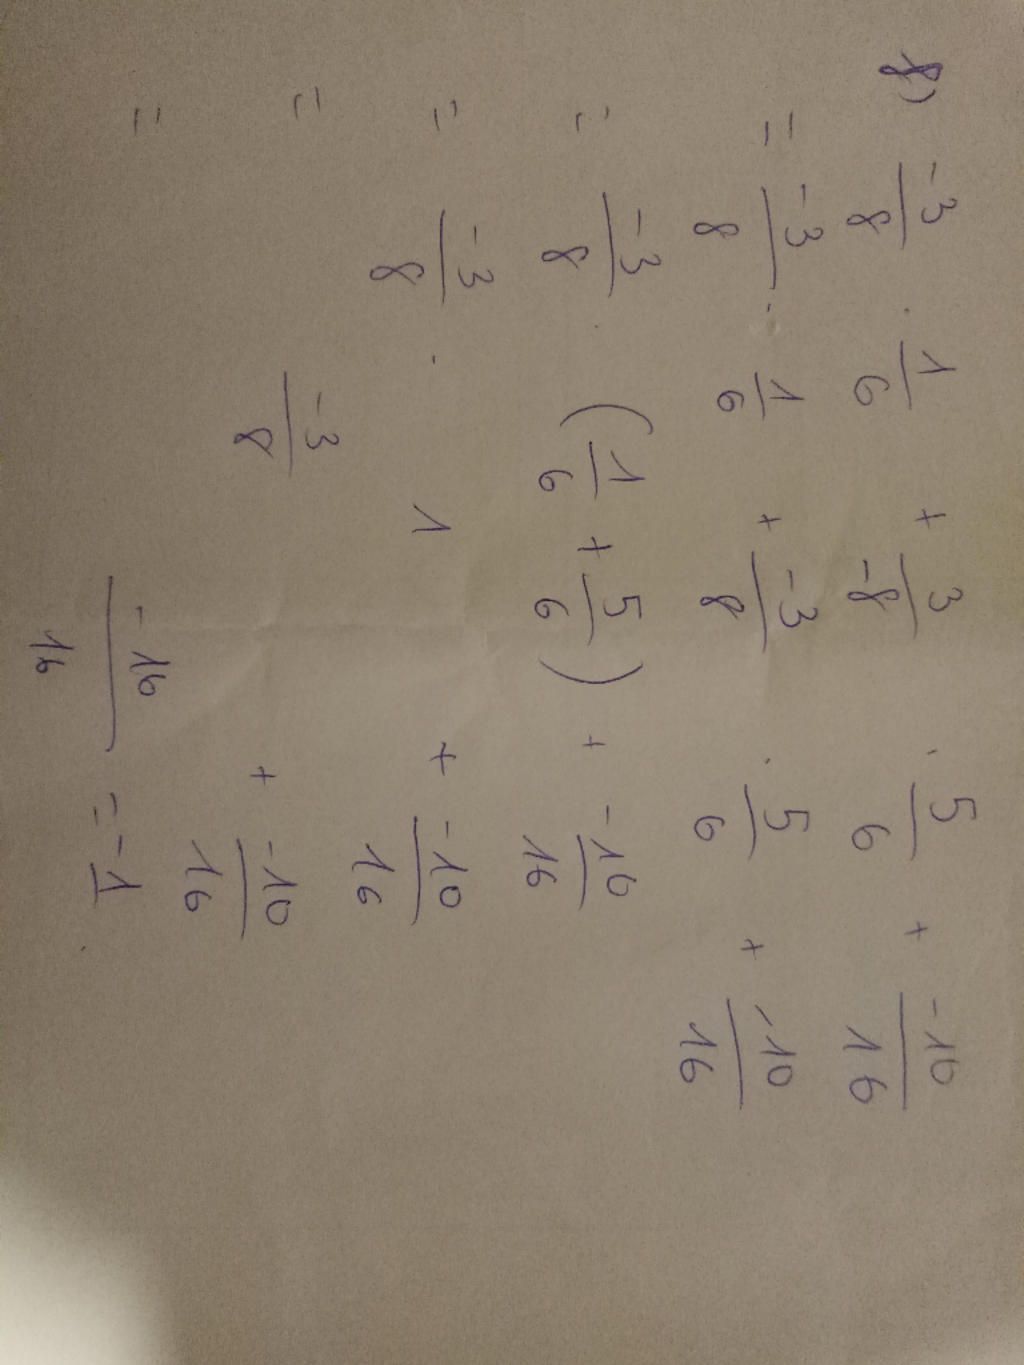 8) -3/8 1/6 + 3/-8 · 5/6 + -10/16
= -3/8 · 1/6 + -3/8 · 5/6 + -10/16
= -3/8 (1/6 + 5/6) + -10/16
= -3/8 · 1 + -10/16
= -3/8 + -10/16
= -16/16 = -1